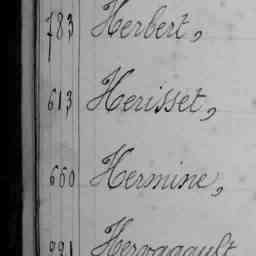 783 Herbert,
613 Herisset,
660 Hermine,
991 Hervagault